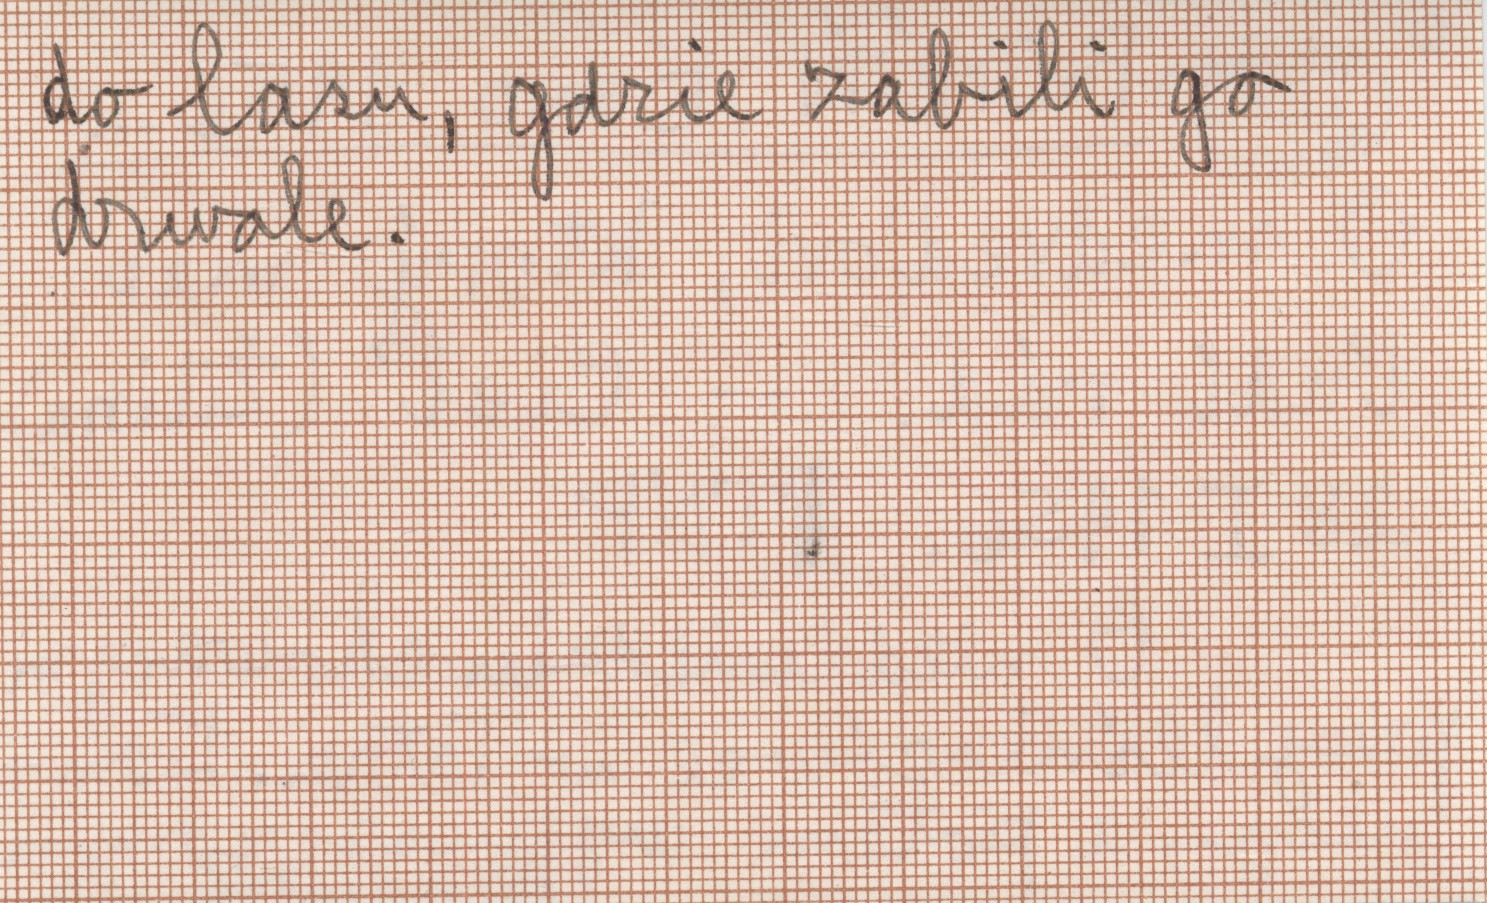 do lasu, gdzie zabili go
drwale.